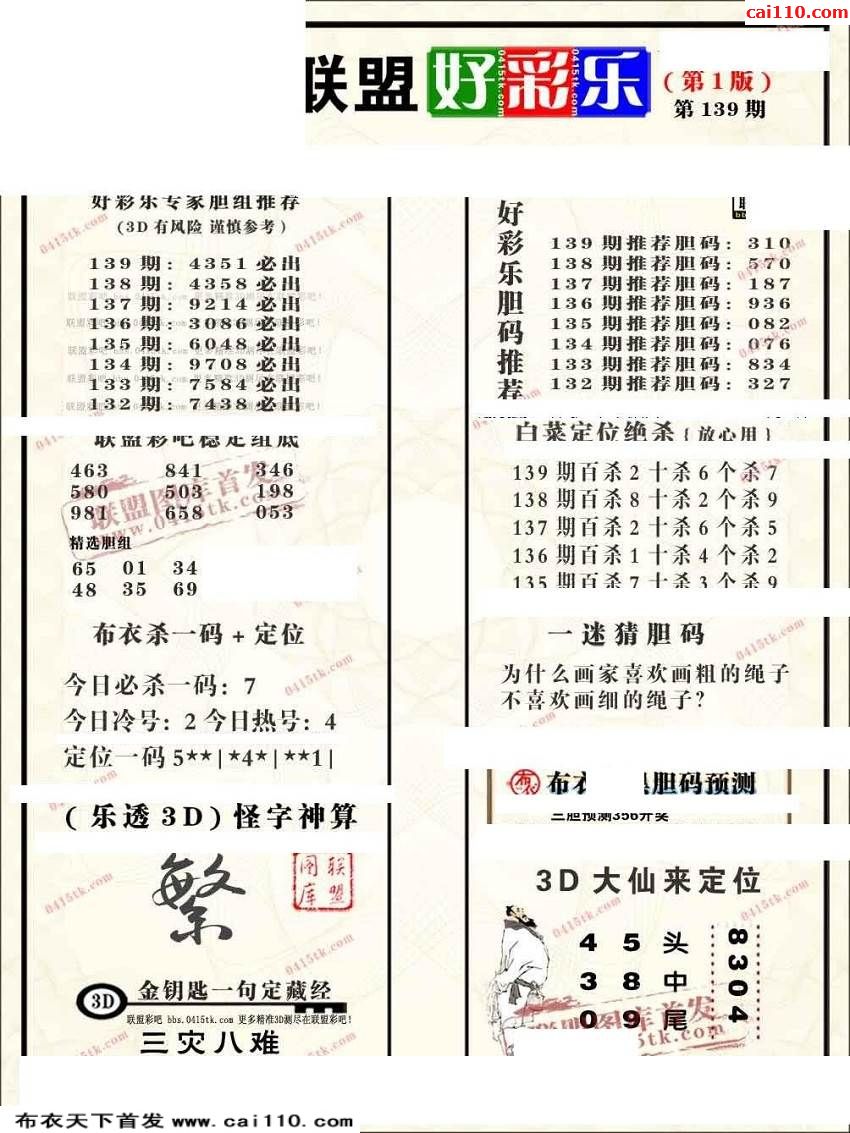 cai110.com
联盟 好彩乐
0415tk.com 0415tk.com 0415tk.com
(第1版)
第139期
好彩乐专家胆组推荐
(3D有风险 谨慎参考)
139期: 4351必出
138期: 4358必出
137期: 9214必出
136期: 3086必出
135期: 6048必出
134期: 9708必出
133期: 7584必出
132期: 7438必出
联盟彩吧稳定组底
463 841 346
580 503 198
981 658 053
联盟图库首发
www.0415tk.com
精选胆组
65 01 34
48 35 69
布衣杀一码+定位
今日必杀一码: 7
今日冷号: 2 今日热号: 4
定位一码5**|*4*|**1|
(乐透3D)怪字神算
繁
联盟图库
3D 金钥匙一句定藏经
联盟彩吧 bbs.0415tk.com 更多精准3D测尽在联盟彩吧!
三灾八难
好彩乐胆码推荐
139期推荐胆码: 310
138期推荐胆码: 570
137期推荐胆码: 187
136期推荐胆码: 936
135期推荐胆码: 082
134期推荐胆码: 076
133期推荐胆码: 834
132期推荐胆码: 327
白菜定位绝杀{放心用}
139期百杀2十杀6个杀7
138期百杀8十杀2个杀9
137期百杀2十杀6个杀5
136期百杀1十杀4个杀2
135期百杀7十杀3个杀9
一迷猜胆码
为什么画家喜欢画粗的绳子
不喜欢画细的绳子?
布衣 胆码预测
三胆预测356开奖
3D大仙来定位
4 5 头
3 8 中
0 9 尾
8304
联盟图库首发
5tk.com
布衣天下首发 www.cai110.com